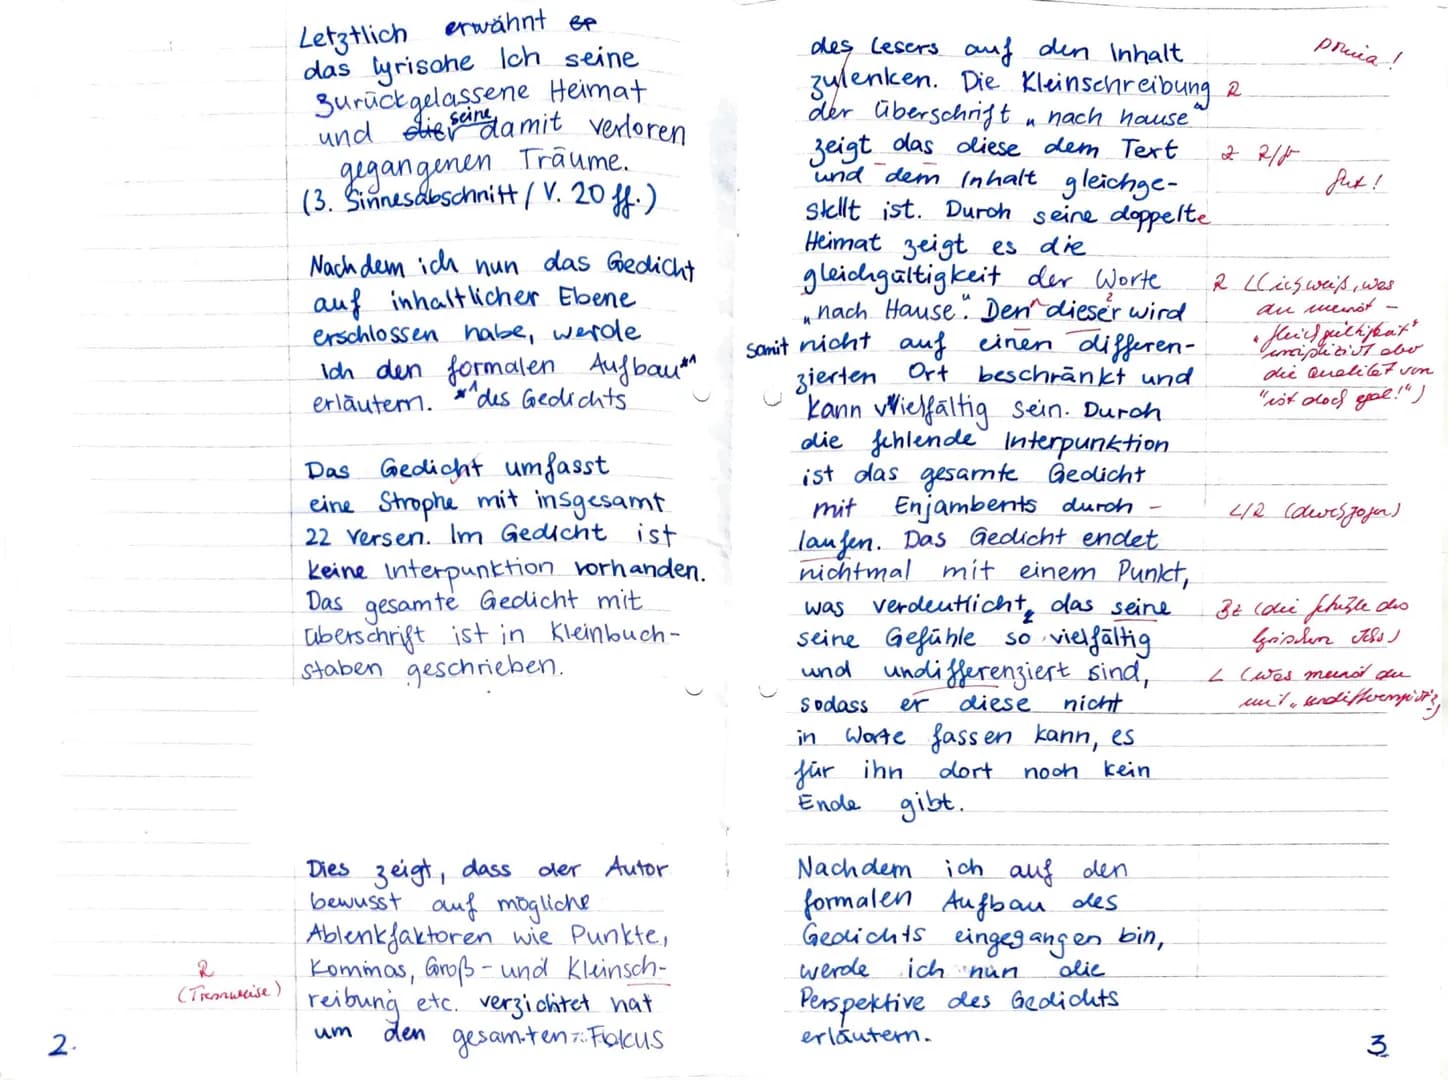 Letztlich erwähnt er
das lyrische Ich seine
zurückgelassene Heimat
und seine damit verloren
gegangenen Träume.
(3. Sinnesabschnitt / V. 20 ff.)
Nachdem ich nun das Gedicht
auf inhaltlicher Ebene
erschlossen habe, werde
ich den formalen Aufbau *^1
erläutern. *^1 des Gedichts
Das Gedicht umfasst
eine Strophe mit insgesamt
22 Versen. Im Gedicht ist
keine Interpunktion vorhanden.
Das gesamte Gedicht mit
Überschrift ist in Kleinbuch-
staben geschrieben.
Dies zeigt, dass der Autor
bewusst auf mögliche
Ablenkfaktoren wie Punkte,
Kommas, Groß- und Kleinsch-
R
(Trennweise)
reibung etc. verzichtet hat
um den gesamten Fokus
2.
des Lesers auf den Inhalt
prima!
zulenken. Die Kleinschreibung
R
der Überschrift „nach hause"
zeigt das diese dem Text
2 R/
und dem Inhalt gleichge-
Gut!
stellt ist. Durch seine doppelte
Heimat zeigt es die
gleichgültigkeit der Worte
R (Ich weiß, was
du meinst –
„nach Hause". Den dieser wird
„Gleichgültigkeit"
somit nicht auf einen differen-
impliziert aber
zierten Ort beschränkt und
die Qualität von
"ist doch egal!")
kann vielfältig sein. Durch
die fehlende Interpunktion
ist das gesamte Gedicht
mit Enjambents durch-
L/R (durchzogen)
laufen. Das Gedicht endet
nichtmal mit einem Punkt,
was verdeutlicht, das seine
Bz (die Gefühle des
seine Gefühle so vielfältig
lyrischen Ichs)
und undifferenziert sind,
L (was meinst du
mit „undifferenziert?")
sodass er diese nicht
in Worte fassen kann, es
für ihn dort noch kein
Ende gibt.
Nachdem ich auf den
formalen Aufbau des
Gedichts eingegangen bin,
werde ich nun die
Perspektive des Gedichts
erläutern.
3